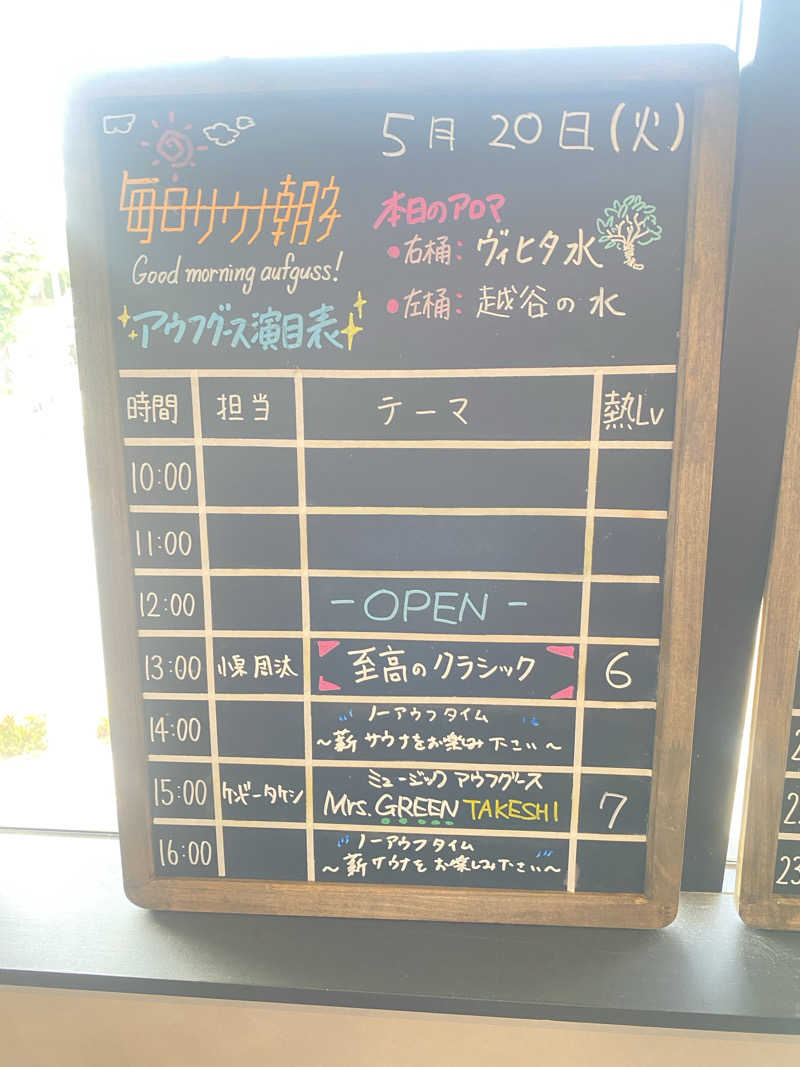 5月 20日(火)
毎日サウナ朝タ
Good morning aufguss!
アウフグース演目表
本日のアロマ
●右桶: ヴィヒタ水
●左桶: 越谷の水
時間 担当 テーマ 熱Lv
10:00
11:00
12:00 -OPEN-
13:00 至高のクラシック 6
14:00 ノーアウフタイム
~薪サウナをお楽しみ下さい~
15:00 ケンビータケシ ミュージックアウフグース
Mrs. GREEN TAKESHI 7
16:00 ノーアウフタイム
~薪サウナをお楽しみ下さい~
23